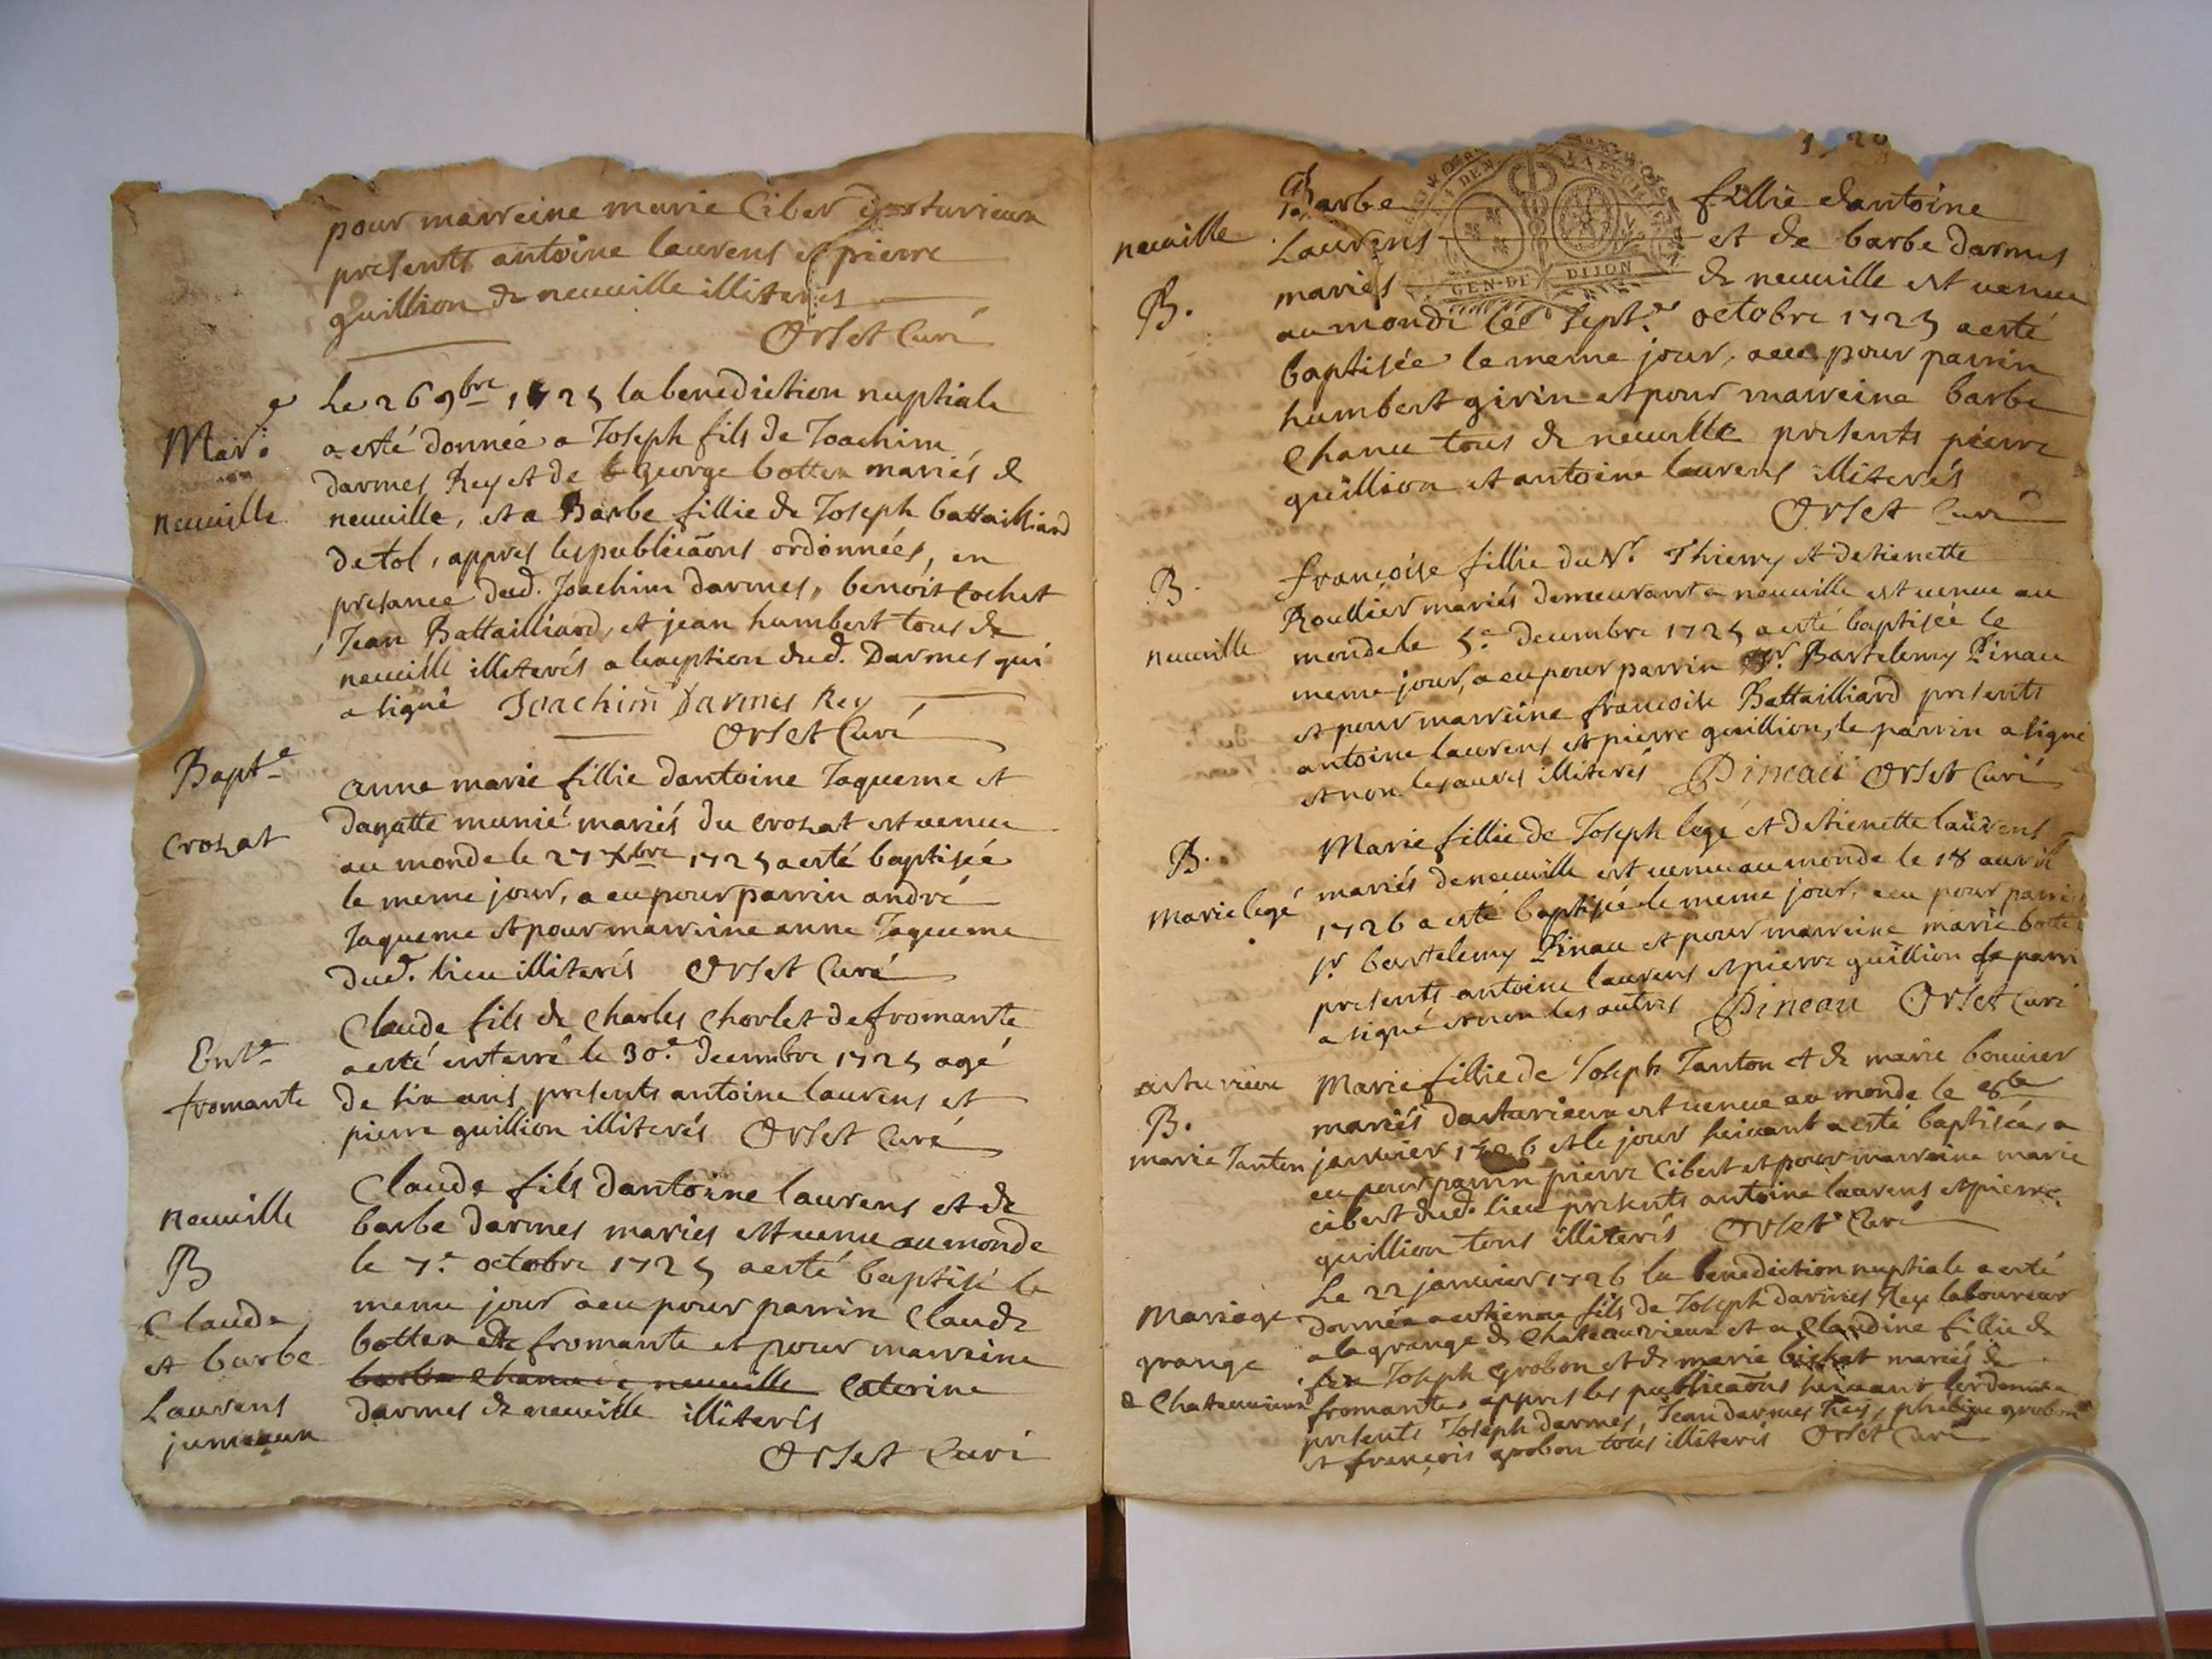 pour marreine marie Ciber
presents antoine laurens et pierre
guillion de neuuille illiterés
Orset Curé
Mar.e
neuuille
Le 26 9bre 1725 la benediction nuptiale
a esté donnée a Joseph fils de Joachim
darmes Rey et de george botten mariés de
neuuille, et a Barbe fillie de Joseph battailliard
de tol, appres les publicãons ordonnées, en
presance dud. Joachim darmes, benoit Cochet
Jean Battailliard, et jean humbert tous de
neuuille illiterés a lexeption dud. Darmes qui
a signé Joachim Darmes Rey
Orset Curé
Bapt.e
Crozat
anne marie fillie dantoine Jaqueme et
dayatte munié mariés du Crozat est uenue
au monde le 27 Xbre 1725 a esté baptisée
le meme jour, a eu pour parrin andré
Jaqueme et pour marreine anne Jaqueme
dud. lieu illiterés Orset Curé
Ent.e
fromante
Claude fils de Charles Chorlet de fromante
a esté enterré le 30.e decembre 1725 agé
de six ans, presents antoine laurens et
pierre guillion illiterés Orset Curé
neuuille
B
Claude
et barbe
Laurens
jumeaux
Claude fils dantoine laurens et de
barbe darmes mariés est uenu au monde
le 7.e octobre 1725 a esté baptisé le
meme jour a eu pour parrin Claude
botten de fromante et pour marreine
barbe Chanu de neuuille Caterine
darmes de neuuille illiterés
Orset Curé
neuuille
B.
Barbe fillie dantoine
Laurens et de barbe darmes
mariés de neuuille est uenue
GEN·DE DIJON
au monde le sept.e octobre 1725 a esté
baptisée le meme jour, a eu pour parrin
humbert girin et pour marreine barbe
Chanu tous de neuuille presents pierre
guillion et antoine laurens illiterés
Orset Curé
B.
neuuille
françoise fillie du Sr. Thierry et destienette
Roullier mariés demeurant a neuuille est uenue au
monde le 5.e decembre 1725 a esté baptisée le
meme jour, a eu pour parrin Sr. Bartelemy Pinau
et pour marreine françoise Battailliard presents
antoine laurens et pierre guillion, le parrin a signé
et non les autres illiterés Pineau Orset Curé
B.
marie legé
Marie fillie de Joseph legé et destienette laurens
mariés de neuuille est uenue au monde le 18 auril
1726 a esté baptisée le meme jour, a eu pour parrin
sr. bartelemy Pinau et pour marreine marie botte
presents antoine laurens et pierre guillion le parri
a signé et non les autres Pineau Orset Curé
arturieux
B.
marie Tanton
Marie fillie de Joseph Tanton et de marie bouuier
mariés darturieux est uenue au monde le 8.e
januier 1726 et le jour suiuant a esté baptisée, a
eu pour parrin pierre Cibert et pour marreine marie
cibert dud. lieu presents antoine laurens et pierre
guillion tous illiterés Orset Curé
Mariage
grange
de Chateauuieux
Le 22 januier 1726 la benediction nuptiale a esté
donnée a estienne fils de Joseph darmes Rey laboureur
a la grange de Chateauuieux et a Claudine fillie de
feu Joseph grobon et de marie bichat mariés de
fromante, appres les publicãons suiuant lordonnance
presents Joseph darmes, Jean darmes Rey, philippe grobon
et françois grobon tous illiterés Orset Curé